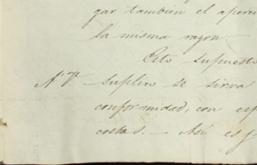 gar también el aper
la misma razon
Esto supuesto
suplico se sirva
conformidad, con esp
costas. — Asi es j